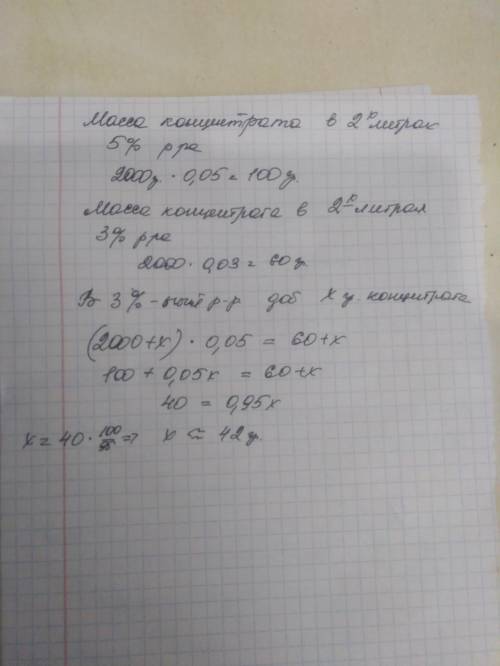 Масса концетрата в 2х литрах
5% р-ра
2000г. · 0,05 = 100г.
Масса концетрата в 2х литрах
3% р-ра
2000 · 0,03 = 60г.
В 3%-ный р-р доб x г. концетрата
(2000+x) · 0,05 = 60+x
100 + 0,05x = 60+x
40 = 0,95x
x = 40 · 100/95 => x ≈ 42г.